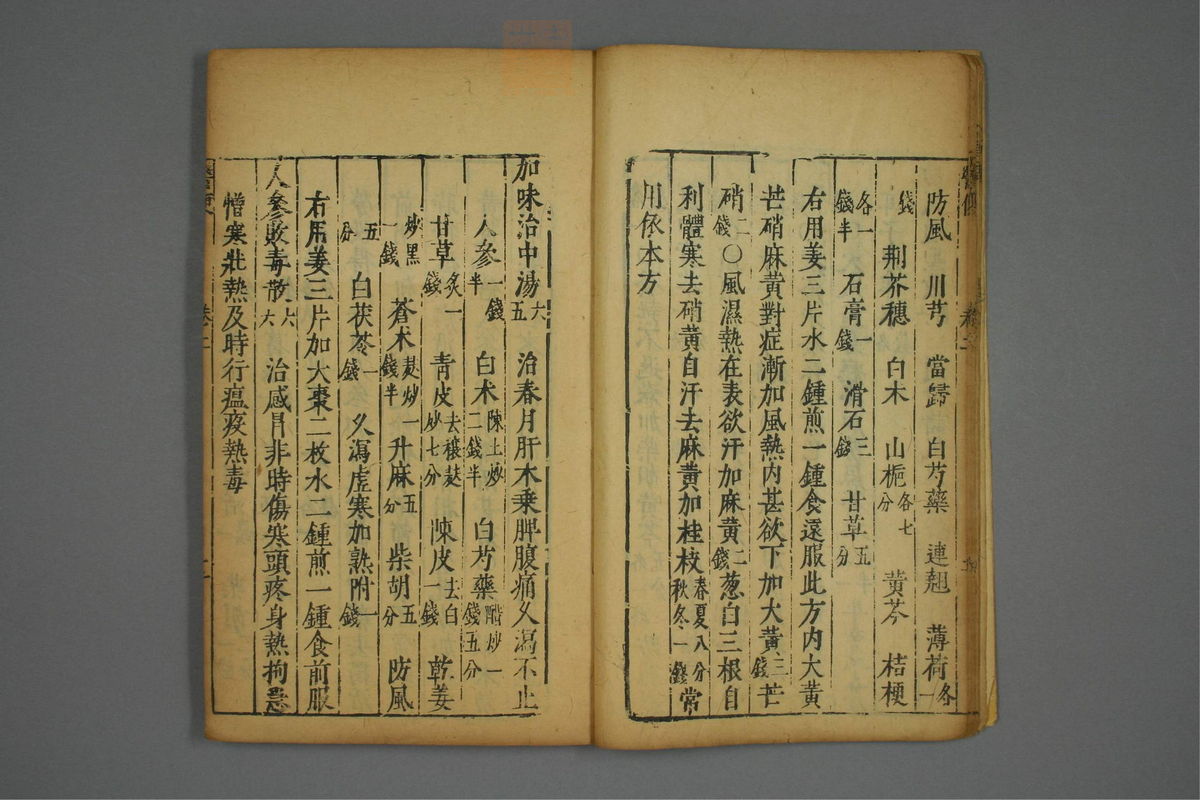 防風 川芎 當歸 白芍藥 連翹 薄荷各一
錢 荆芥穗 白木 山梔各七分 黃芩 桔梗
各一錢半 石膏一錢 滑石三錢 甘草五分
右用姜三片水二鍾煎一鍾食遠服此方內大黃
芒硝麻黃對症漸加風熱內甚欲下加大黃三錢芒
硝二錢○風濕熱在表欲汗加麻黃二錢葱白三根自
利體寒去硝黃自汗去麻黃加桂枝春夏八分秋冬一錢常
用依本方
加味治中湯六五 治春月肝木乘脾腹痛久瀉不止
人參一錢半 白术陳土炒二錢半 白芍藥醋炒一錢五分
甘草炙一錢 青皮去穰麩炒七分 陳皮去白一錢 乾姜
炒黑一錢 蒼术麩炒一錢半 升麻五分 柴胡五分 防風
五分 白茯苓一錢 久瀉虛寒加熟附一錢
右用姜三片加大棗二枚水二鍾煎一鍾食前服
人參敗毒散六六 治感冒非時傷寒頭疼身熱拘急
憎寒壯熱及時行瘟疫熱毒
卷二